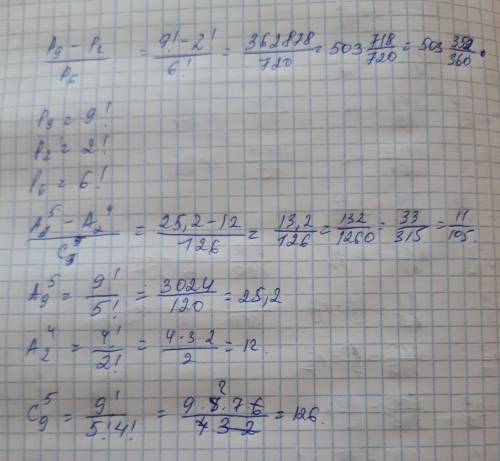 (P₉ − P₂)/P₆ = (9! − 2!)/6! = 362878/720 = 503 718/720 = 503 359/360.
P₉ = 9!
P₂ = 2!
P₆ = 6!
(A₉⁵ − A₂⁴)/C₉⁵ = (25,2 − 12)/126 = 13,2/126 = 132/1260 = 33/315 = 11/105.
A₉⁵ = 9!/5! = 3024/120 = 25,2
A₂⁴ = 4!/2! = (4·3·2)/2 = 12.
C₉⁵ = 9!/(5!4!) = (9·8·7·6)/(4·3·2) = 126.